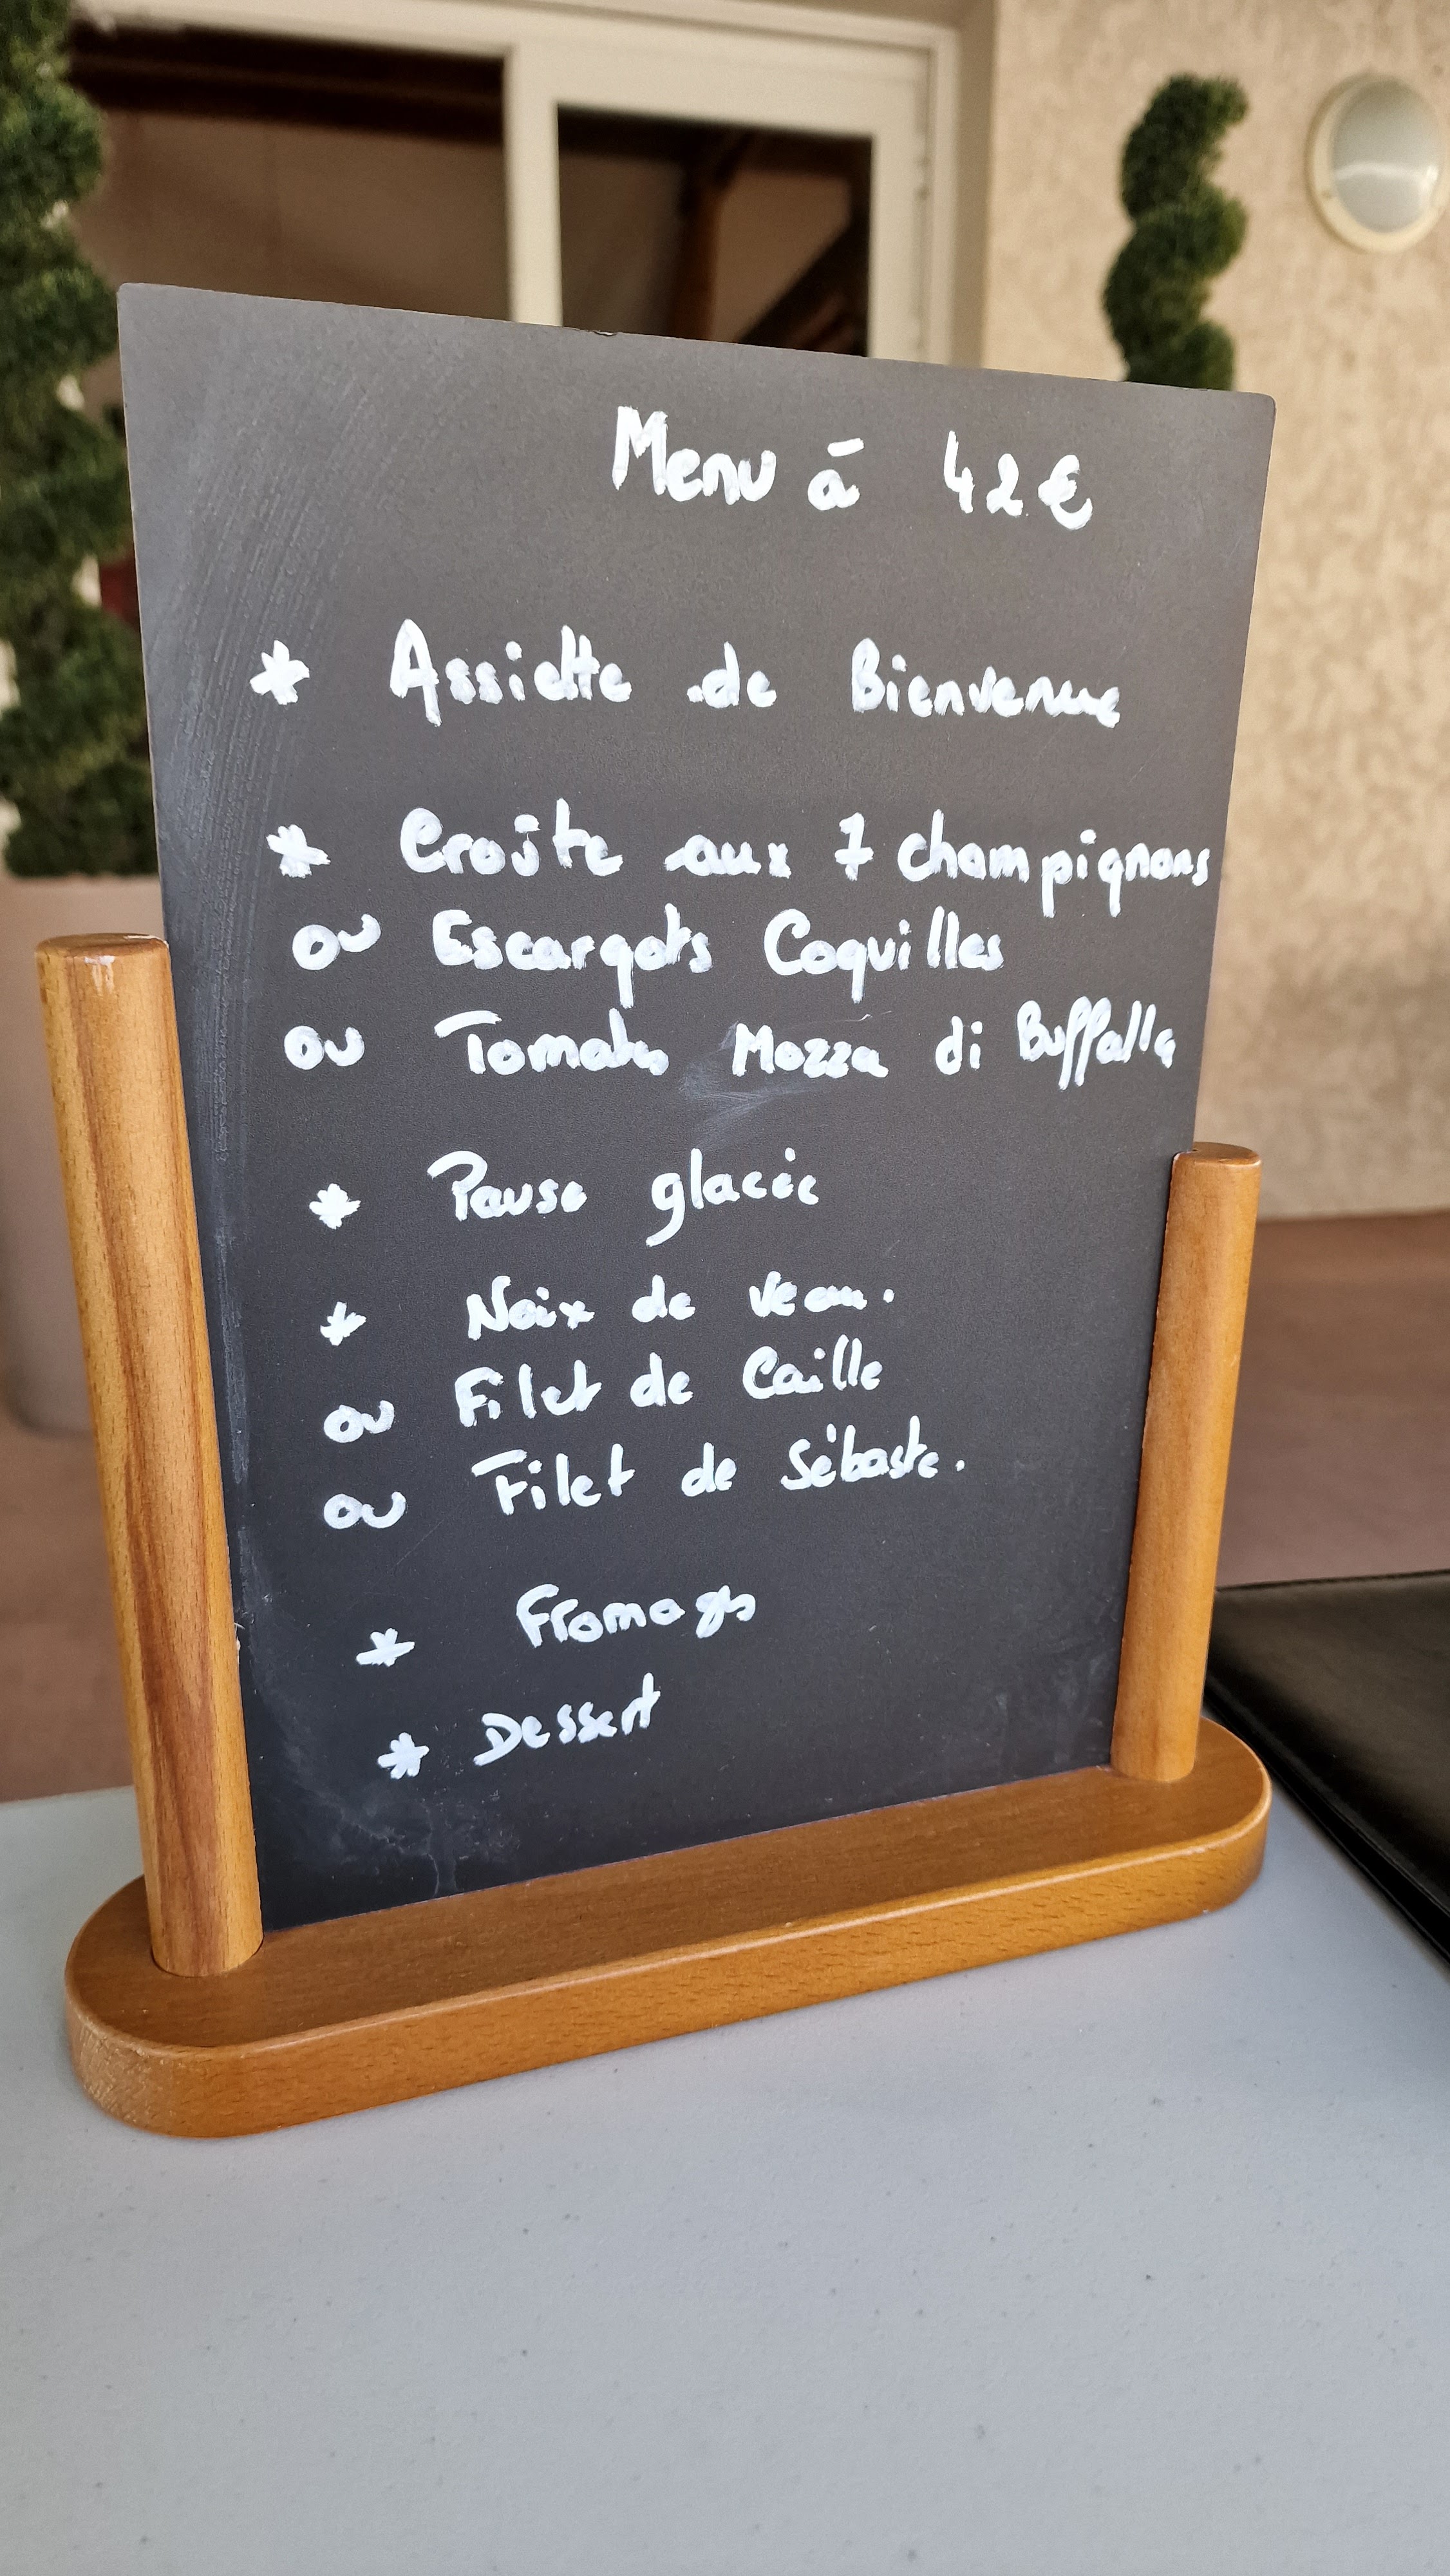 Menu à 42€
* Assiette de Bienvenue
* Croûte aux 7 champignons
ou Escargots Coquilles
ou Tomates Mozza di Buffalla
* Pause glacée
* Noix de veau.
ou Filet de Caille
ou Filet de Sébaste.
* Fromages
* Dessert